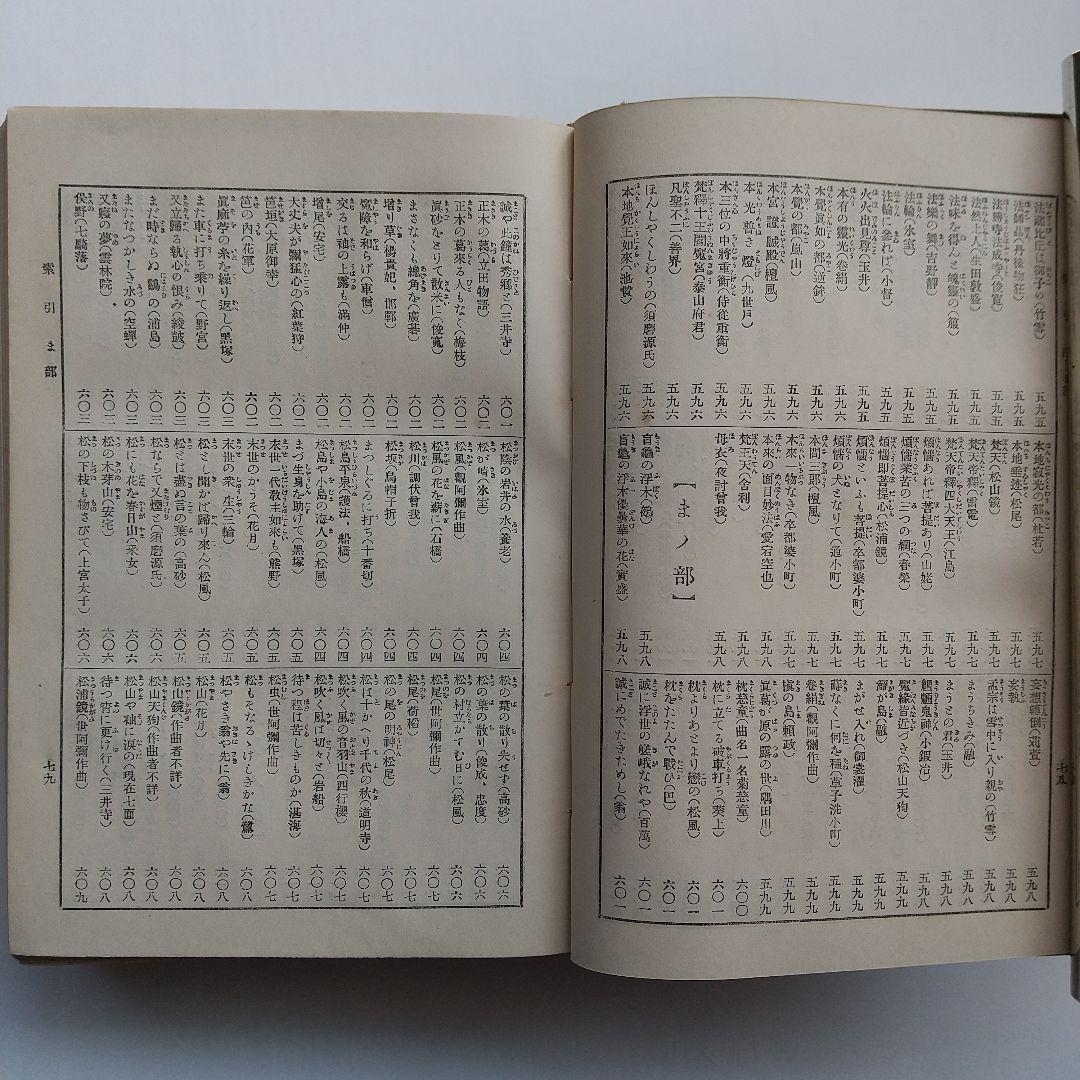 法藏比丘は御子の(竹雪) 五九五
法師品(丹後物狂) 五九五
法勝寺法成寺(俊寬) 五九五
法然上人(生田敦盛) 五九五
法味を得んと魄靈の(箙) 五九五
法樂の舞(吉野靜) 五九五
法輪(氷室) 五九五
法輪に參れば(小督) 五九五
火々出見尊(玉井) 五九五
本有の靈光(卷絹) 五九五
本覺眞如の都(逆鉾) 五九五
本覺の都(嵐山) 五九六
本宮、證誠殿(檀風) 五九六
本光普き燈(九世戶) 五九六
本三位の中將重衡(侍從重衡) 五九六
梵釋十王閻魔宮(泰山府君) 五九六
凡聖不二(善界) 五九六
ほんしやくしわうの(須磨源氏) 五九六
本地覺王如來(池贄) 五九六
本地寂光の都(杜若) 五九七
本地垂迹(松尾) 五九七
梵天(松山鏡) 五九七
梵天帝釋(雷電) 五九七
梵天帝釋四大天王(江島) 五九七
煩惱あれば菩提あり(山姥) 五九七
煩惱業苦の三つの綱(春榮) 五九七
煩惱即菩提心(松浦鏡) 五九七
煩惱といふも菩提(卒都婆小町) 五九七
煩惱の犬となりて(通小町) 五九七
本間三郞(檀風) 五九七
本來一物なき(卒都婆小町) 五九七
本來の面目妙法(愛宕空也) 五九八
梵王天(舍利) 五九八
母衣(夜討曾我) 五九八
【まノ部】
盲龜の浮木(鵺) 五九八
盲龜の浮木優曇華の花(實盛) 五九八
妄想顚倒(苅萱) 五九八
妄執 五九八
孟宗は雪中に入り親の(竹雪) 五九八
まうさの君(玉井) 五九八
まうちきみ(融) 五九八
魍魎鬼神(小鍛冶) 五九九
魔緣皆近づき(松山天狗) 五九九
籬が島(融) 五九九
まかせ入れ(御裳濯) 五九九
蒔なくに何を種(草子洗小町) 五九九
卷絹(觀阿彌作曲) 五九九
槇の島(賴政) 五九九
眞葛が原の露の世(隅田川) 五九九
枕慈童(曲名一名菊慈童) 六〇〇
枕に立てる破車打ち(葵上) 六〇一
枕をたたんで戰ひ(巴) 六〇一
枕よりあとより戀の(松風) 六〇一
誠に浮世の嵯峨なれや(百萬) 六〇一
誠にめでたきためし(翁) 六〇一
誠や此鐘は秀鄕と(三井寺) 六〇一
正木の蔓(立田物語) 六〇二
正木の葛來る人もなく(梅枝) 六〇二
眞砂をとりて散米に(俊寬) 六〇二
まさなくも總角を(廣碁) 六〇二
增り草(楊貴妃、邯鄲) 六〇二
魔障を和らげ(車僧) 六〇二
交るは袖の上露も(滿仲) 六〇二
增尾(安宅) 六〇二
大丈夫が彌猛心の(紅葉狩) 六〇二
笆垣(大原御幸) 六〇二
笆の內(花軍) 六〇二
眞麻苧の糸を繰り返し(黑塚) 六〇三
また車に打ち乘りて(野宮) 六〇三
又立歸る執心の恨み(綾鼓) 六〇三
まだ時ならぬ鶴の(浦島) 六〇三
またなつかしき水の(空蟬) 六〇三
又寢の夢(雲林院) 六〇三
俣野(七騎落) 六〇三
松陰の岩井の水(養老) 六〇四
松が崎(氷室) 六〇四
松風(觀阿彌作曲) 六〇四
松風の花を薪に(石橋) 六〇四
松川(調伏曾我) 六〇四
松坂(烏帽子折) 六〇四
まつしぐろに打ち(十番切) 六〇四
松島平泉(護法、船橋) 六〇四
松島や小島の海人の(松風) 六〇四
まづ生身を助けて(黑塚) 六〇五
末世一代敎主如來も(熊野) 六〇五
末世のかうそ(花月) 六〇五
末世の衆生(三輪) 六〇五
松とし聞かば歸り來ん(松風) 六〇五
松とは盡ぬ言の葉の(高砂) 六〇五
松ならで又煙と(須磨源氏) 六〇六
松にも花を春日山(采女) 六〇六
松の木芽山(安宅) 六〇六
松の下枝も物さびて(上宮太子) 六〇六
松の葉の散り失せず(高砂) 六〇六
松の葉の散り(俊成、忠度) 六〇六
松の村立かすむ日に(松風) 六〇六
松尾(世阿彌作曲) 六〇七
松尾(葡稻) 六〇七
松の尾の明神(松尾) 六〇七
松ばしかへり千代の秋(道明寺) 六〇七
松吹く風の音羽山(四行櫻) 六〇七
松吹く風は切々と(岩船) 六〇七
待つ程は苦しきものか(湛海) 六〇七
松虫(世阿彌作曲) 六〇七
松もそなるゝけしきかな(鷺) 六〇八
松やさき翁や先に(翁) 六〇八
松山(花月) 六〇八
松山鏡(作曲者不詳) 六〇八
松山天狗(作曲者不詳) 六〇八
松山や袖に淚の(現在七面) 六〇八
待つ宵に更け行く(三井寺) 六〇八
松浦鏡(世阿彌作曲) 六〇九
索引 ま部
七九